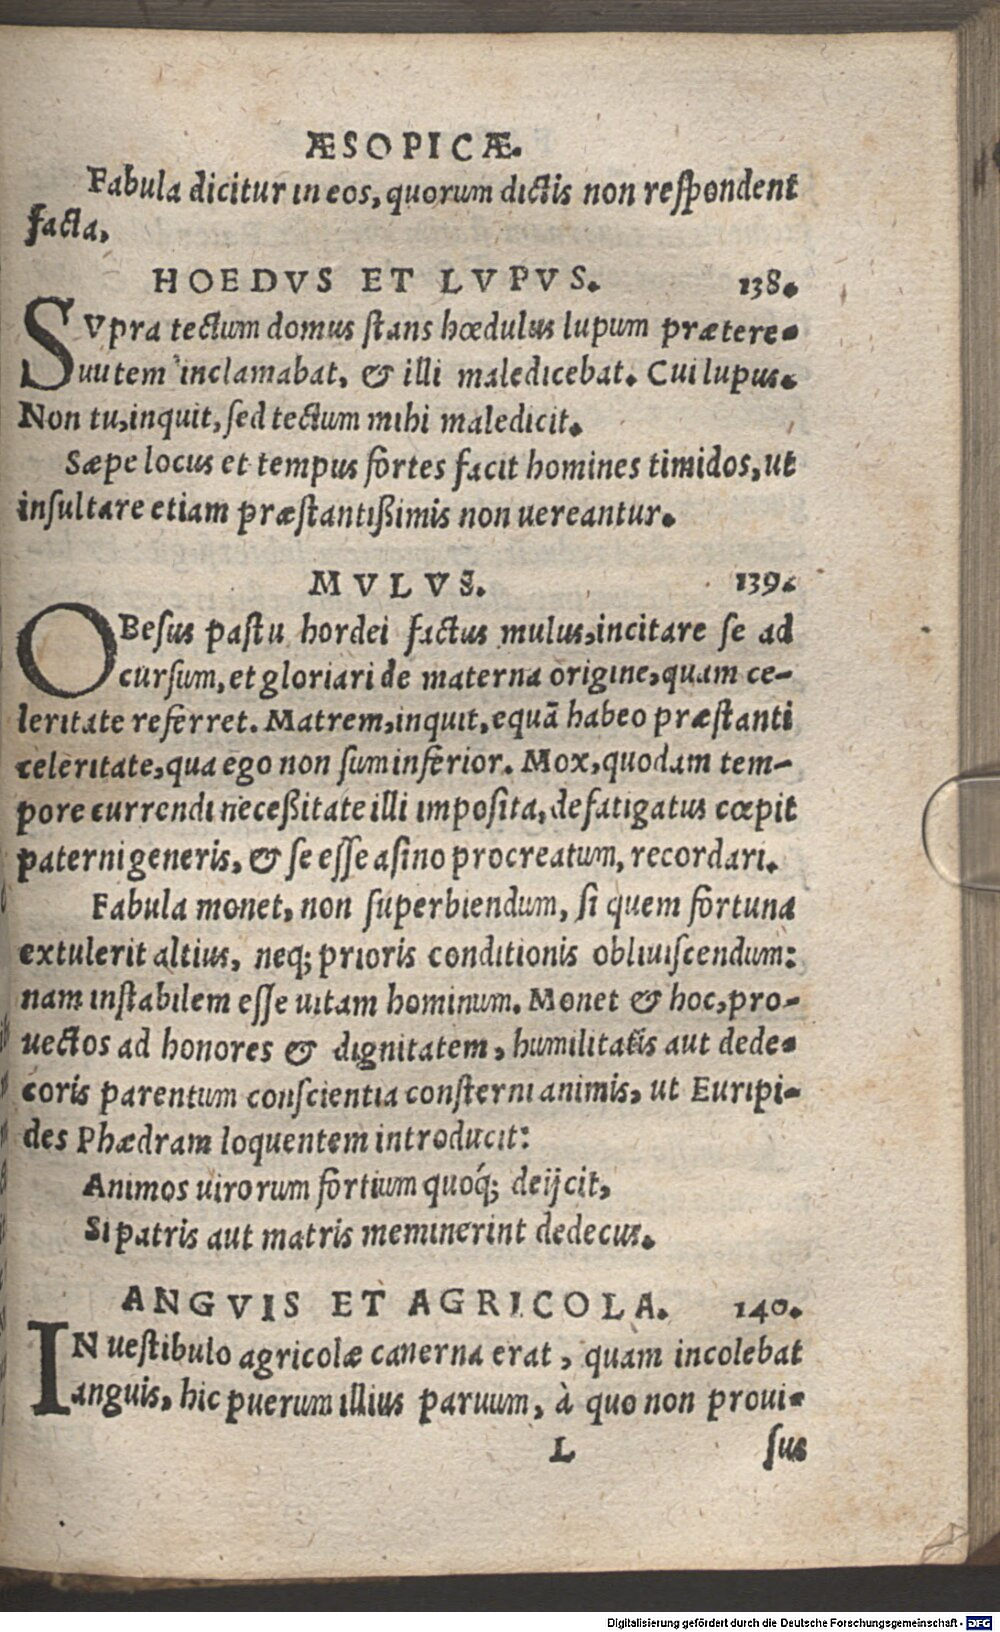 ÆSOPICÆ.
Fabula dicitur in eos, quorum dictis non respondent
facta,
HOEDVS ET LVPVS. 138.
SVpra tectum domus stans hœdulus lupum prætere-
uutem inclamabat, & illi maledicebat. Cui lupus.
Non tu, inquit, sed tectum mihi maledicit.
Sæpe locus et tempus fortes facit homines timidos, ut
insultare etiam præstantißimis non uereantur.
MVLVS. 139.
OBesus pastu hordei factus mulus, incitare se ad
cursum, et gloriari de materna origine, quam ce-
leritate referret. Matrem, inquit, equã habeo præstanti
celeritate, qua ego non sum inferior. Mox, quodam tem-
pore currendi neceßitate illi imposita, defatigatus cœpit
paterni generis, & se esse asino procreatum, recordari.
Fabula monet, non superbiendum, si quem fortuna
extulerit altius, neq; prioris conditionis obliuiscendum:
nam instabilem esse uitam hominum. Monet & hoc, pro-
uectos ad honores & dignitatem, humilitatis aut dede-
coris parentum conscientia consterni animis, ut Euripi-
des Phædram loquentem introducit:
Animos uirorum fortium quoq́; deijcit,
Si patris aut matris meminerint dedecus.
ANGVIS ET AGRICOLA. 140.
IN uestibulo agricolæ cauerna erat, quam incolebat
anguis, hic puerum illius paruum, à quo non proui-
L sus
Digitalisierung gefördert durch die Deutsche Forschungsgemeinschaft - DFG